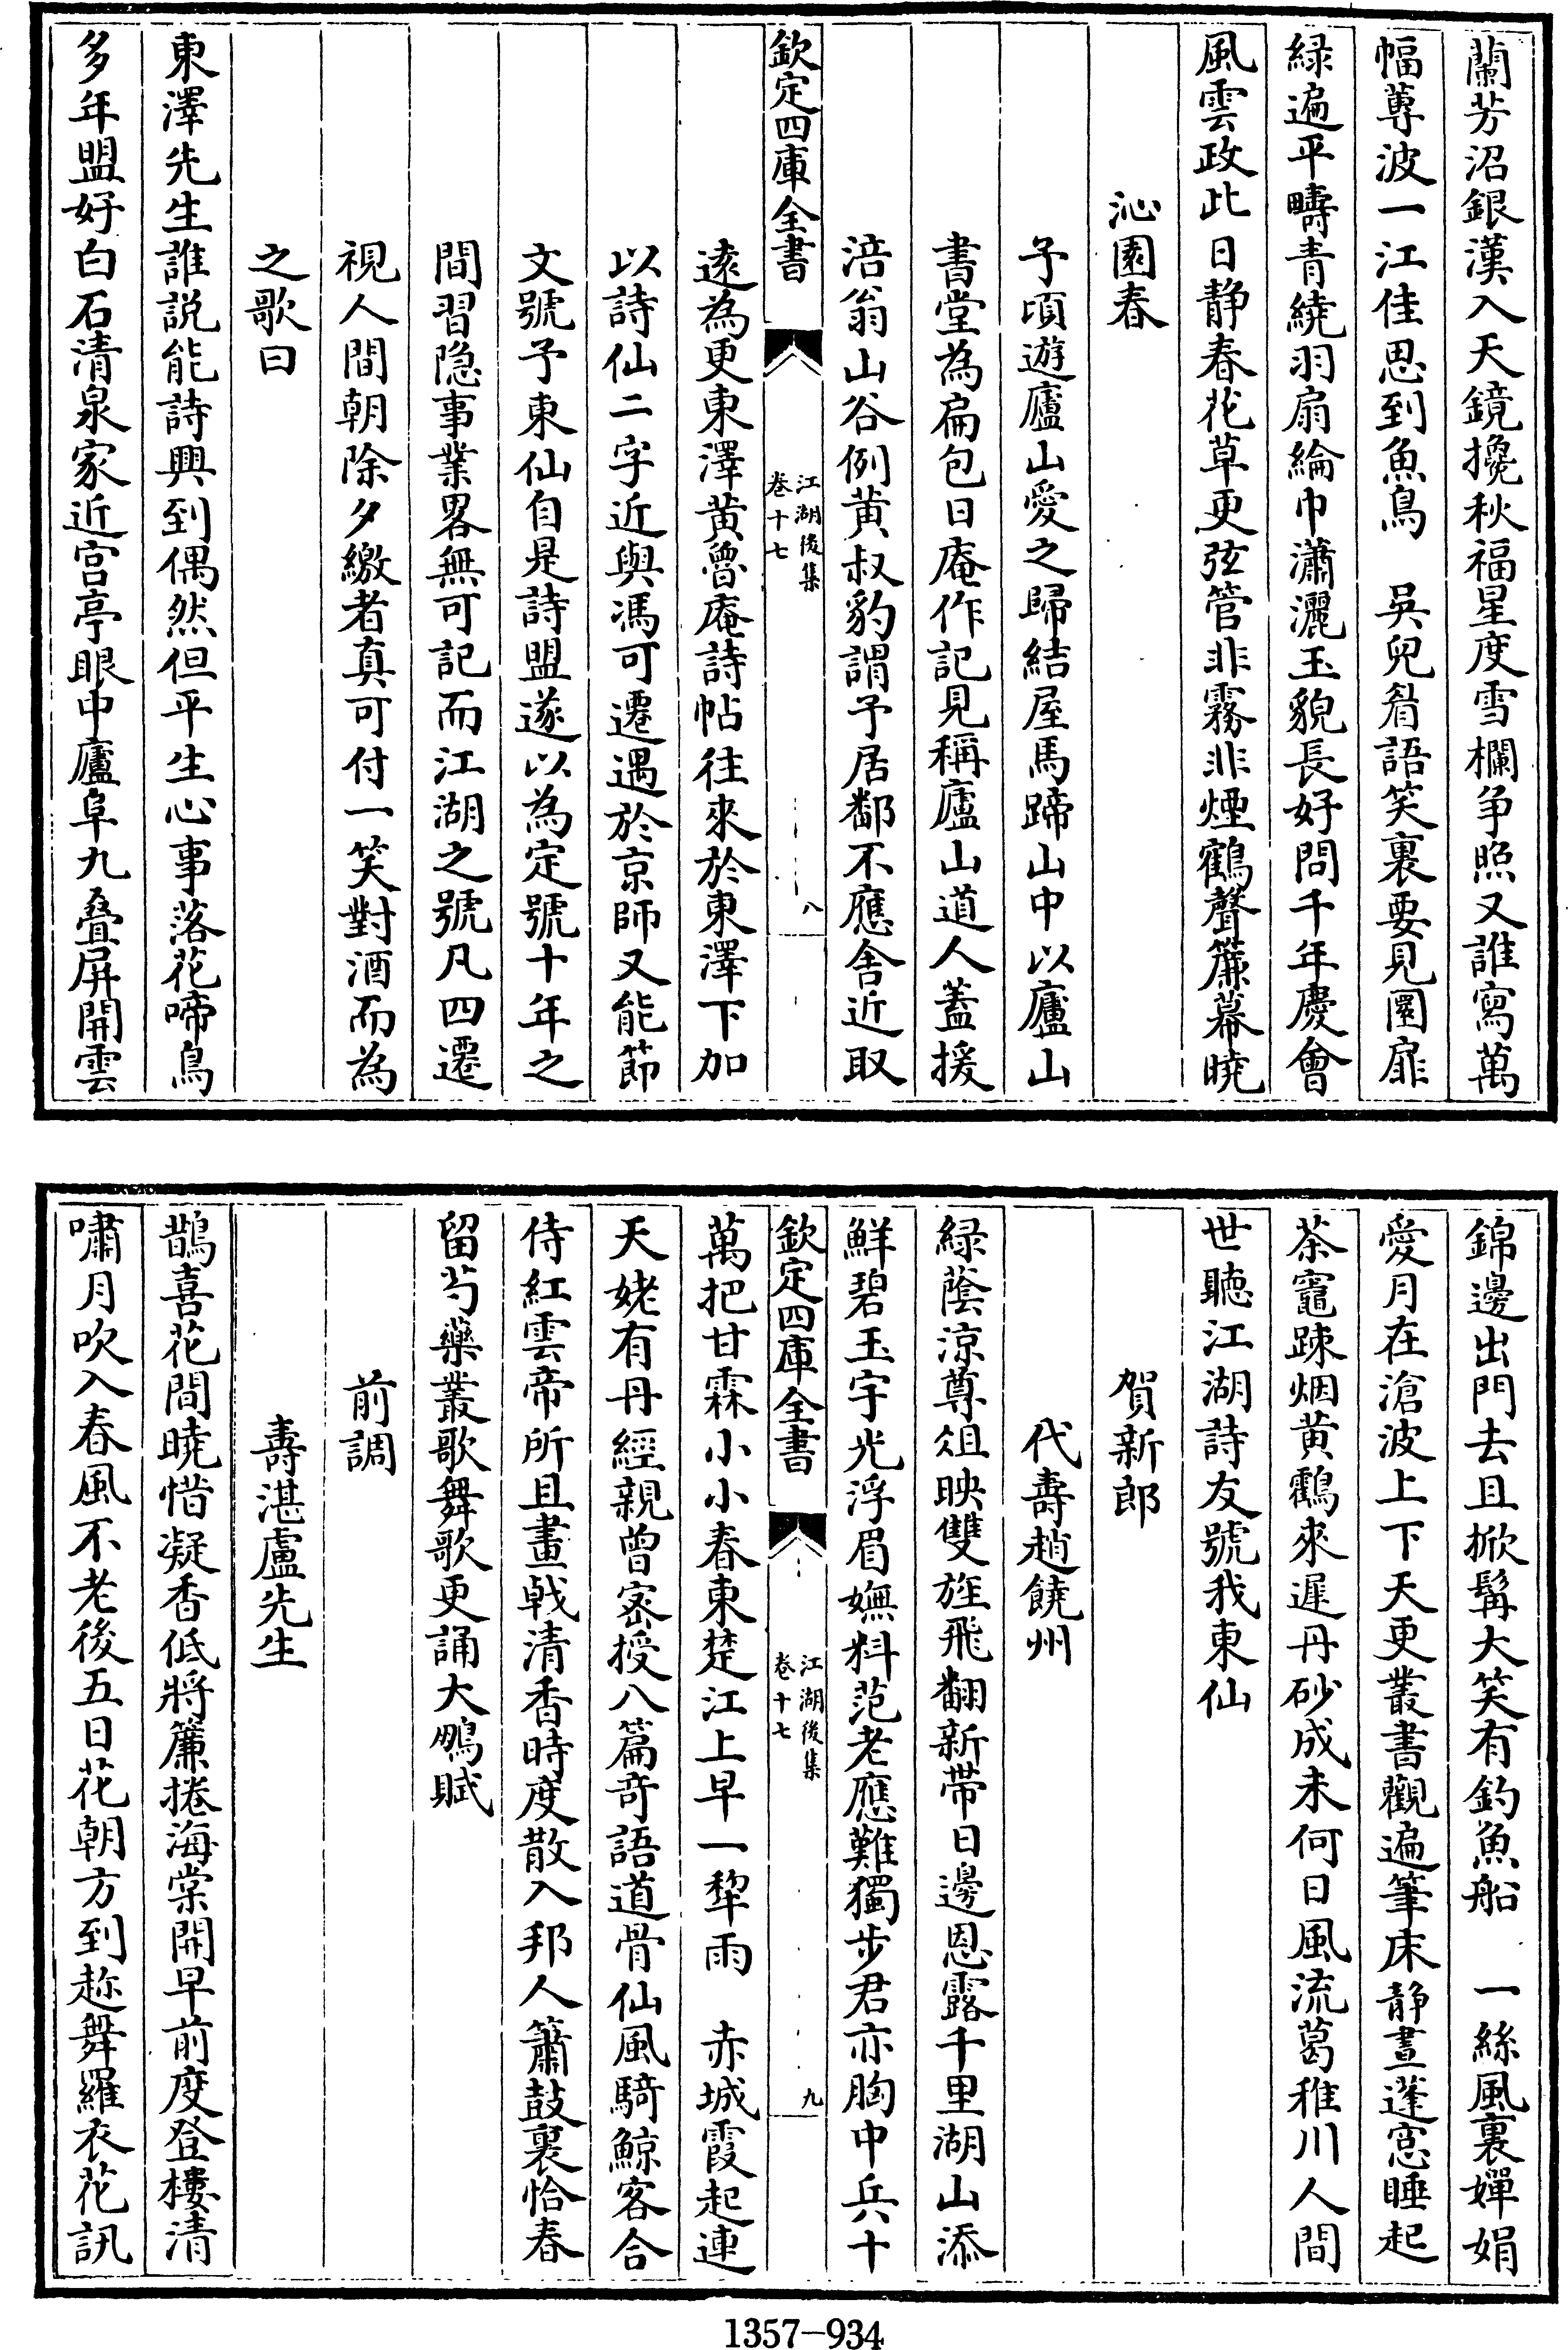 蘭芳沼銀漢入天鏡攙秋福星度雪欄爭照又誰寫萬
幅蓴波一江佳思到魚鳥　吳兒㸔語笑裏要見圜扉
綠遍平疇青繞羽扇綸巾瀟灑玉貌長好問千年慶會
風雲政此日静春花草更弦管非霧非煙鶴聲簾幕曉
沁園春
予頃遊廬山愛之歸結屋馬蹄山中以廬山
書堂為扁包日庵作記見稱廬山道人蓋援
涪翁山谷例黄叔豹謂予居鄱不應舍近取
欽定四庫全書
江湖後集
卷十七
八
逺為更東澤黄魯庵詩帖往來於東澤下加
以詩仙二字近與馮可遷遇於京師又能節
文號予東仙自是詩盟遂以為定號十年之
間習隐事業畧無可記而江湖之號凡四遷
視人間朝除夕繳者真可付一笑對酒而為
之歌曰
東澤先生誰説能詩興到偶然但平生心事落花啼鳥
多年盟好白石清泉家近宫亭眼中廬阜九疊屏開雲
錦邊出門去且掀髯大笑有釣魚船　一絲風裏嬋娟
愛月在滄波上下天更叢書觀遍筆床静晝蓬窓睡起
茶竈踈烟黄鸖來遲丹砂成未何日風流葛稚川人間
世聽江湖詩友號我東仙
賀新郎
代壽趙饒州
緑蔭涼尊俎映雙旌飛翻新帶日邊恩露千里湖山添
鮮碧玉宇光浮眉嫵料范老應難獨步君亦胸中兵十
欽定四庫全書
江湖後集
卷十七
九
萬把甘霖小小春東楚江上早一犂雨　赤城霞起連
天姥有丹經親曾宻授八篇竒語道骨仙風騎鯨客合
侍紅雲帝所且畫戟清香時度散入邦人簫鼓裏恰春
留芍藥叢歌舞歌更誦大鵬賦
前調
壽湛盧先生
鵲喜花間曉惜凝香低將簾捲海棠開早前度登樓清
嘯月吹入春風不老後五日花朝方到趂舞羅衣花訊
1357-934